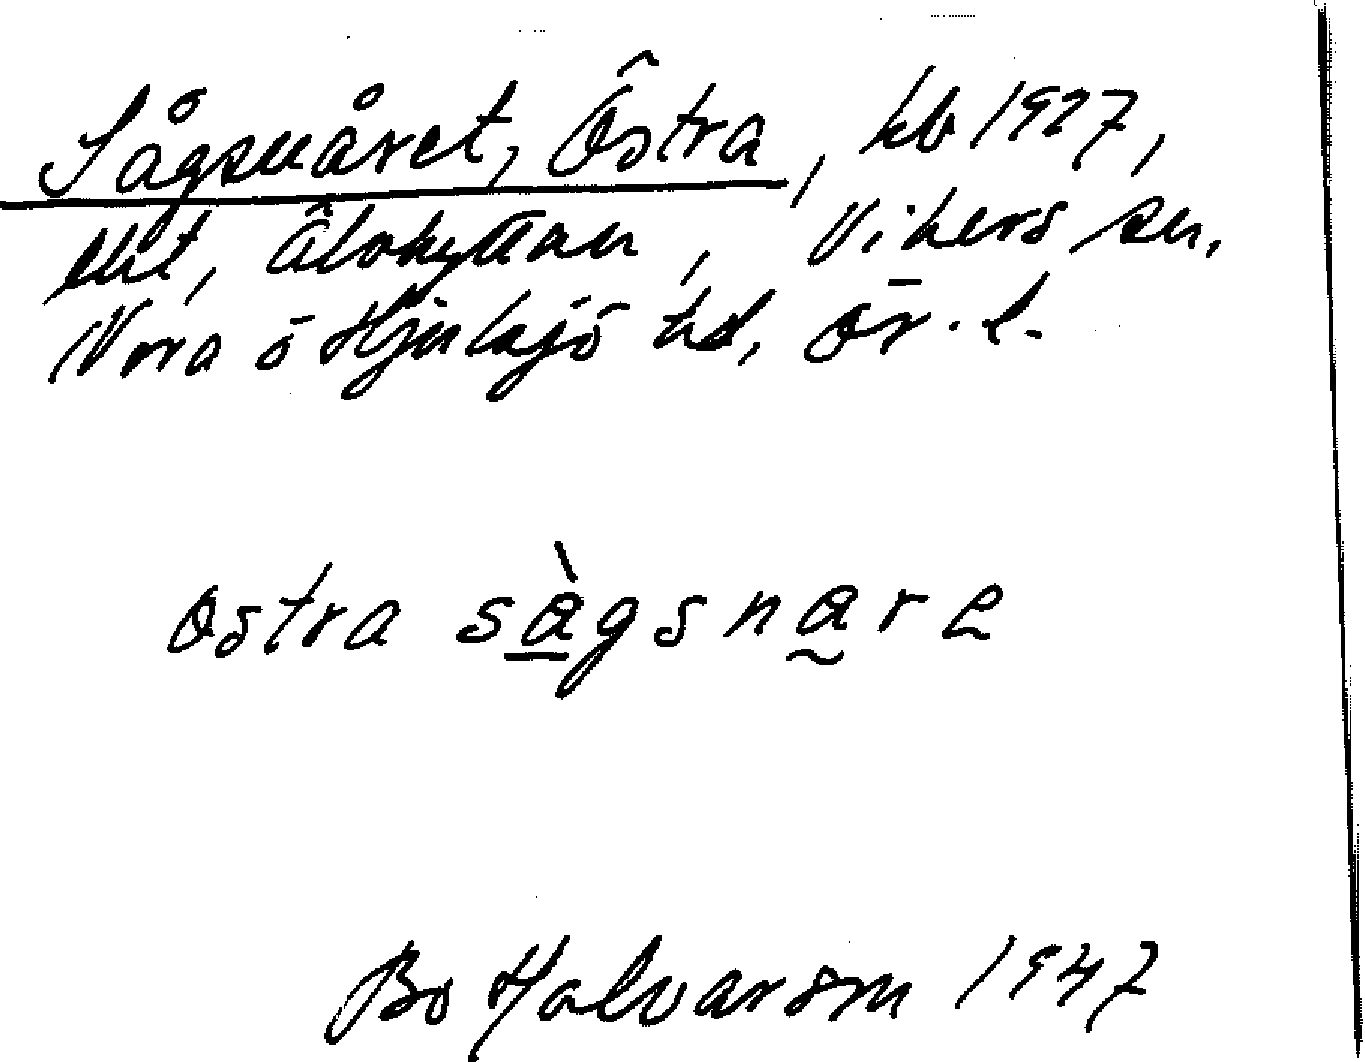 Sågsnåret, Östra, kb 1927,
Älvhyttan, Vikers sn,
Nora o Hjulsjö hd, Ör. l.
östra sågsnare
Bo Halvarson 1947